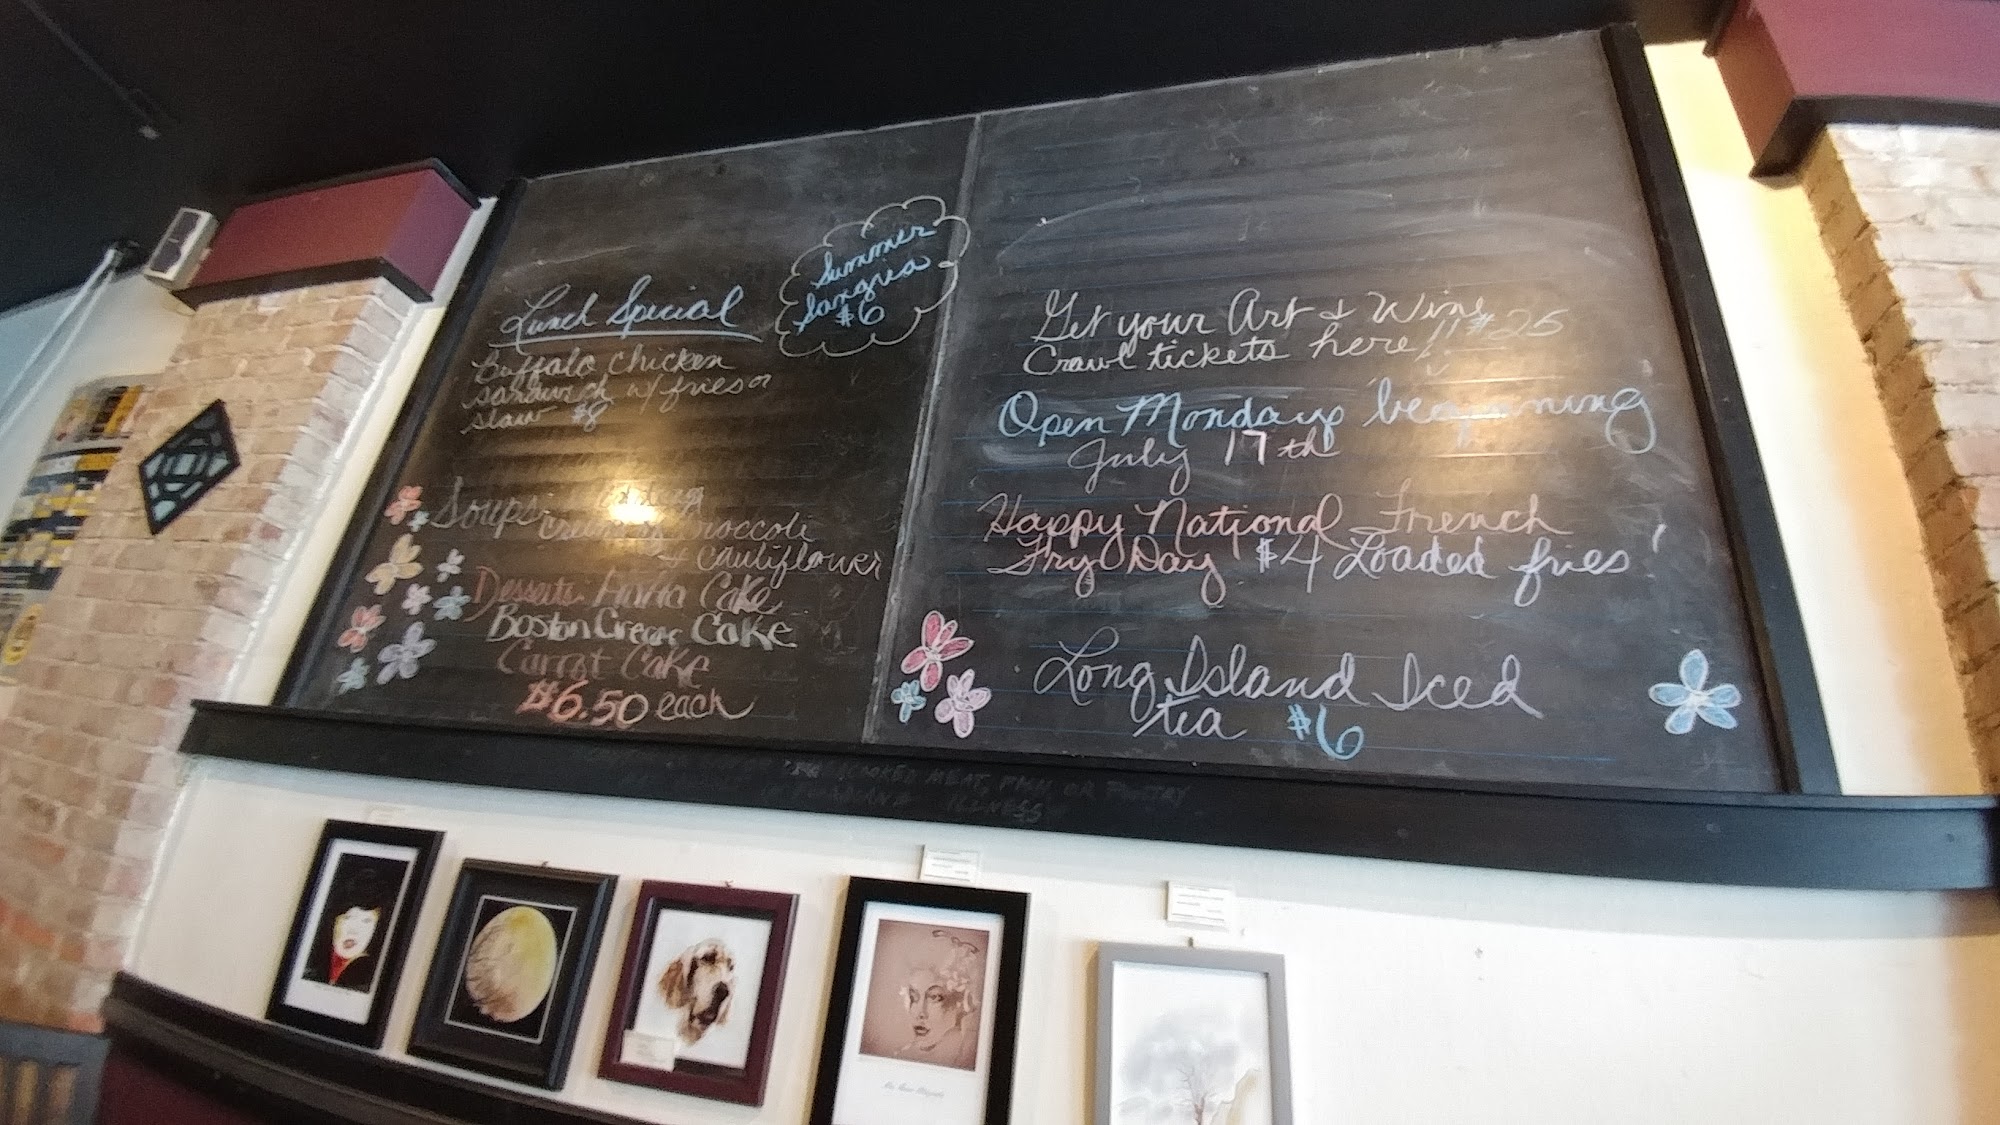 Lunch Special
Buffalo chicken
sandwich w/ fries or
slaw $8
Summer
Sangria
$6
Soups:
creamy broccoli
+ cauliflower
Desserts: Cake
Boston Creme Cake
Carrot Cake
$6.50 each
Get your Art & Wine
Crawl tickets here!! $25
Open Mondays beginning
July 17th
Happy National French
Fry Day $4 Loaded fries!
Long Island Iced
tea $6
COOKED MEAT, FISH OR POULTRY
ILLNESS